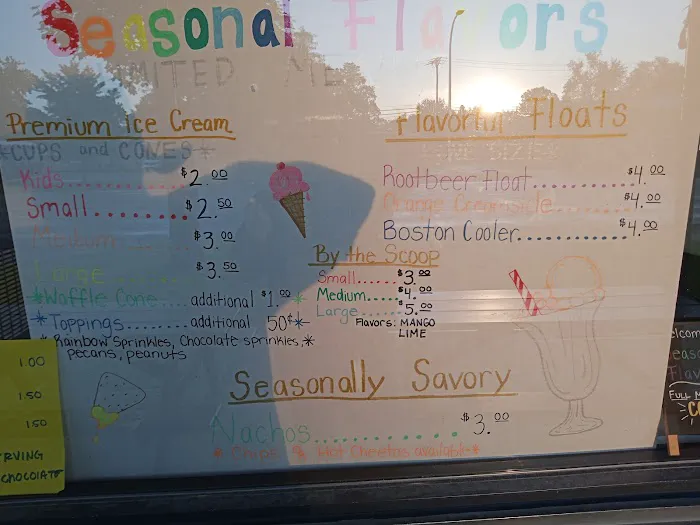 Seasonal Flavors
Premium Ice Cream
*CUPS and CONES*
Kids......$2.00
Small.......$2.50
Medium......$3.00
Large......$3.50
*Waffle Cone....additional $1.00*
*Toppings......additional 50¢*
*Rainbow Sprinkles, Chocolate sprinkles,*
pecans, peanuts
Floats
Rootbeer Float..........$4.00
Orange Creamsicle........$4.00
Boston Cooler..........$4.00
By the Scoop
Small......$3.00
Medium.....$4.00
Large.....$5.00
Flavors: MANGO
LIME
Seasonally Savory
Nachos..........$3.00
*Chips & Hot Cheetos available*
1.00
1.50
1.50
RVING
CHOCOLATE
elcom
Flav
FULL M